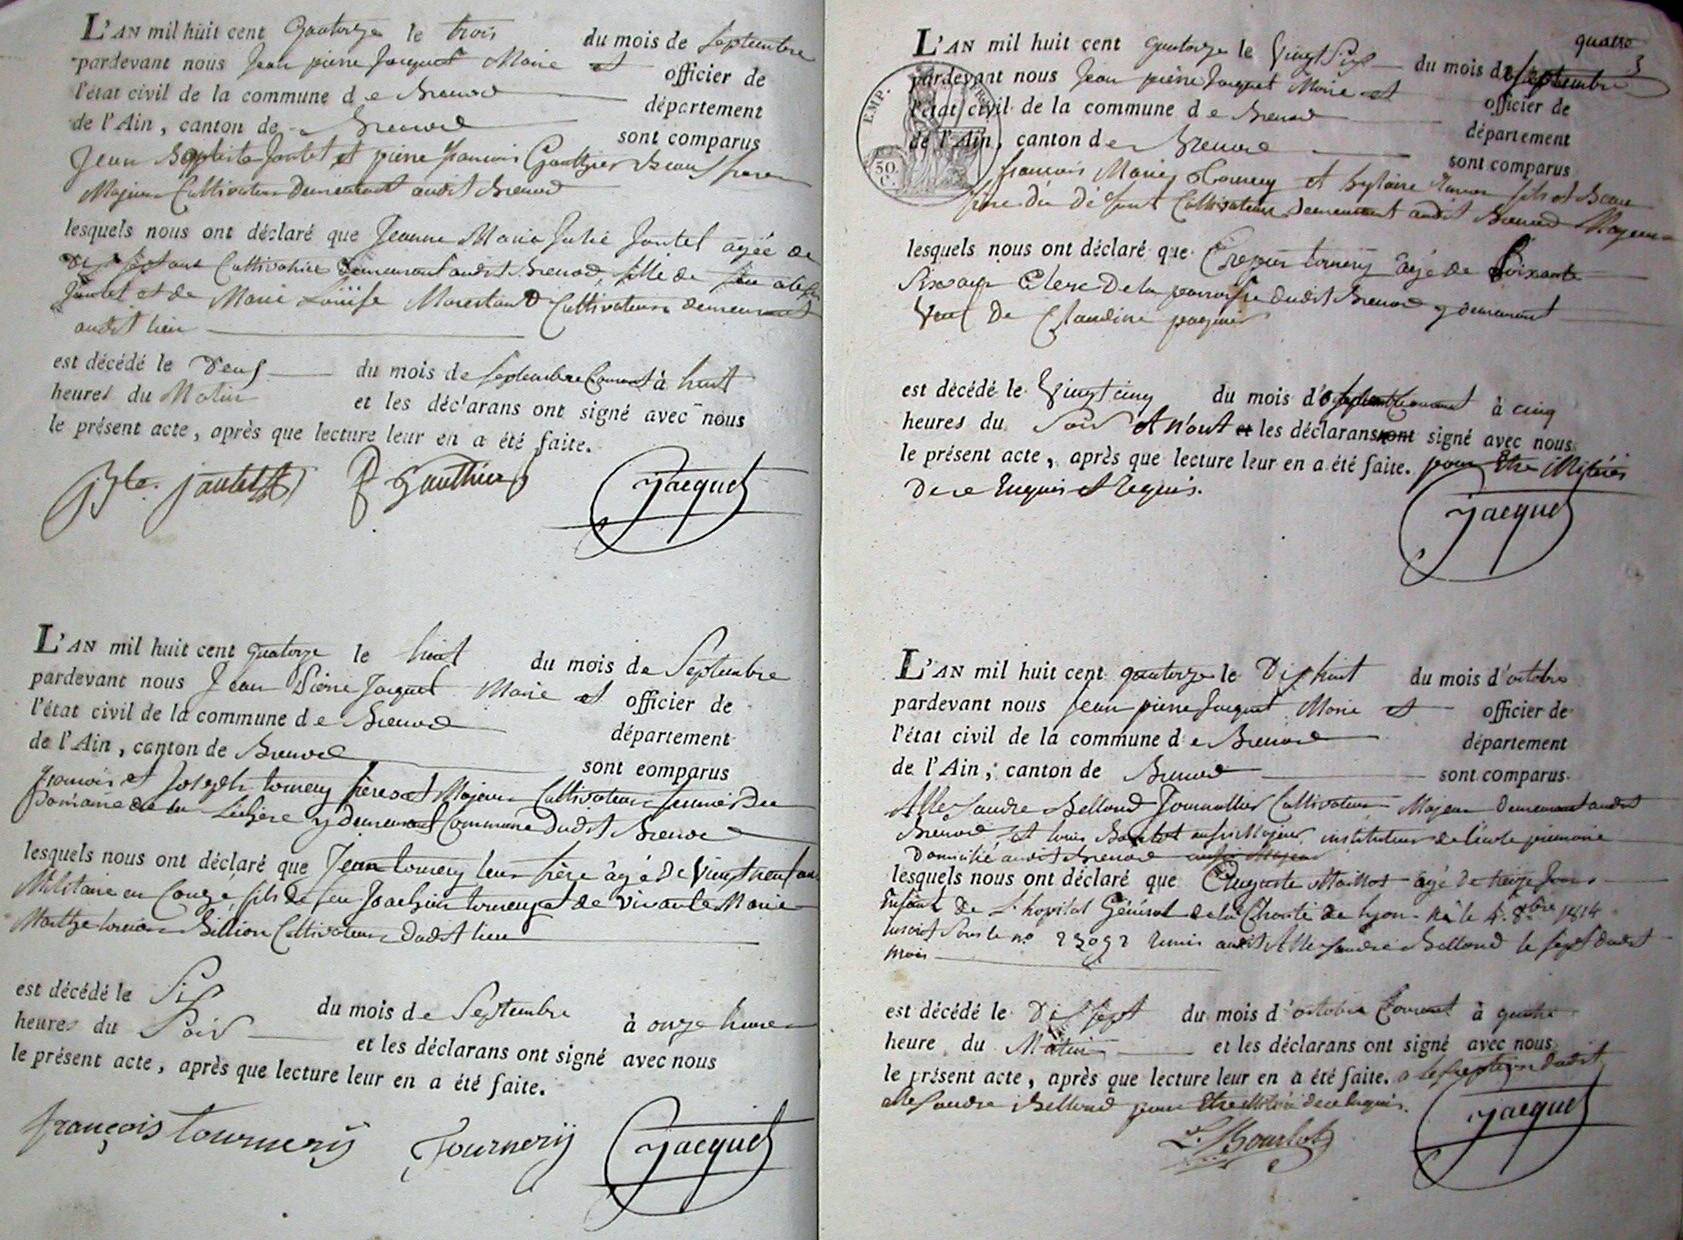 L'AN mil huit cent quatorze le trois du mois de Septembre
pardevant nous Jean pierre Jacquet Maire et officier de
l'état civil de la commune d e Brenod département
de l'Ain, canton de Brenod sont comparus
Jean Baptiste Jantet et pierre francois Gauthier Beau frere
Majeurs Cultivateurs Demeurant audit Brenod
lesquels nous ont déclaré que Jeanne Marie Julie Jantet agée de
ans Cultivatrice Demeurant audit Brenod, fille de feu
Jantet et de Marie Louise Cultivateurs demeurant
audit lieu
est décédé le Deux du mois de Septembre Courant à huit
heures du Matin et les déclarans ont signé avec nous
le présent acte, après que lecture leur en a été faite.
Jte. jantet P Gauthier Jacquet
L'AN mil huit cent quatorze le huit du mois de Septembre
pardevant nous Jean Pierre Jacquet Maire et officier de
l'état civil de la commune d e Brenod département
de l'Ain, canton de Brenod sont comparus
francois et Joseph tournery frères et Majeurs Cultivateurs fermiers Du
Domaine de la Léchère y demeurant Commune Dudit Brenod
lesquels nous ont déclaré que Jean tournery leur frère âgé De Vingt
Militaire en Congé fils de feu Joachim tournery et de vivante Marie
Marthe Billion Cultivateurs Dudit lieu
est décédé le Six du mois de Septembre à onze heures
heures du Soir et les déclarans ont signé avec nous
le présent acte, après que lecture leur en a été faite.
françois tournerÿ Tournerÿ Jacquet
quatre
3
L'AN mil huit cent quatorze le Vingt Six du mois de Septembre
pardevant nous Jean pierre Jacquet Maire et officier de
l'état civil de la commune d e Brenod département
de l'Ain, canton d e Brenod sont comparus
EMP.
50
C.
françois Marie tournery et hylaire fils et Beau
frere du défunt Cultivateurs Demeurant audit Brenod Majeurs
lesquels nous ont déclaré que tournery âgé de Soixante
Six ans Clerc De la paroisse dudit Brenod y demeurant
Veuf De Claudine pagnier
est décédé le Vingt cinq du mois de Septembre Courant à cinq
heures du Soir et N'ont et les déclarans ont signé avec nous
le présent acte, après que lecture leur en a été faite. pour Etre illitérés
De ce Enquis et requis.
Jacquet
L'AN mil huit cent quatorze le Dix huit du mois d'octobre
pardevant nous Jean pierre Jacquet Maire et officier de
l'état civil de la commune d e Brenod département
de l'Ain, canton de Brenod sont comparus
Allexandre Belloud Journallier Cultivateur Majeur demeurant audit
Brenod, Et Louis Bourlot aussi Majeur instituteur de l'école primaire
Domicilié audit Brenod aussi Majeur
lesquels nous ont déclaré que Auguste agé de treize Jours
Enfant De L'hopital Général de la Charité de Lyon né le 4. 8bre 1814
Inscrit Sous le no 23092 remis audit Allexandre Belloud le sept dudit
mois
est décédé le Dix Sept du mois d'octobre Courant à quatre
heure du Matin et les déclarans ont signé avec nous
le présent acte, après que lecture leur en a été faite. a l'exception dudit
Allexandre Belloud pour Etre illitéré de ce Enquis.
L. Bourlot Jacquet